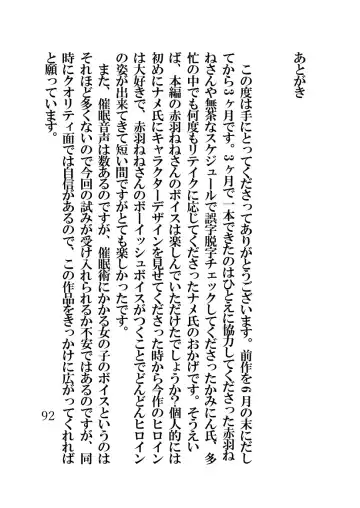 あとがき
この度は手にとってくださってありがとうございます。前作を6月の末にだし
てから3ヶ月です。3ヶ月で一本できたのはひとえに協力してくださった赤羽ね
ねさんや無茶なスケジュールで誤字脱字チェックしてくださったかみにん氏、多
忙の中でも何度もリテイクに応じてくださったナメ氏のおかげです。そういえ
ば、本編の赤羽ねねさんのボイスは楽しんでいただけたでしょうか?個人的には
初めにナメ氏にキャラクターデザインを見せてくださった時から今作のヒロイン
は大好きで、赤羽ねねさんのボーイッシュボイスがつくことでどんどんヒロイン
の姿が出来てきて短い間ですがとても楽しかったです。
また、催眠音声は数あるのですが、催眠術にかかる女の子のボイスというのは
それほど多くないので今回の試みが受け入れられるか不安ではあるのですが、同
時にクオリティ面では自信があるので、この作品をきっかけに広がってくれれば
と願っています。
92